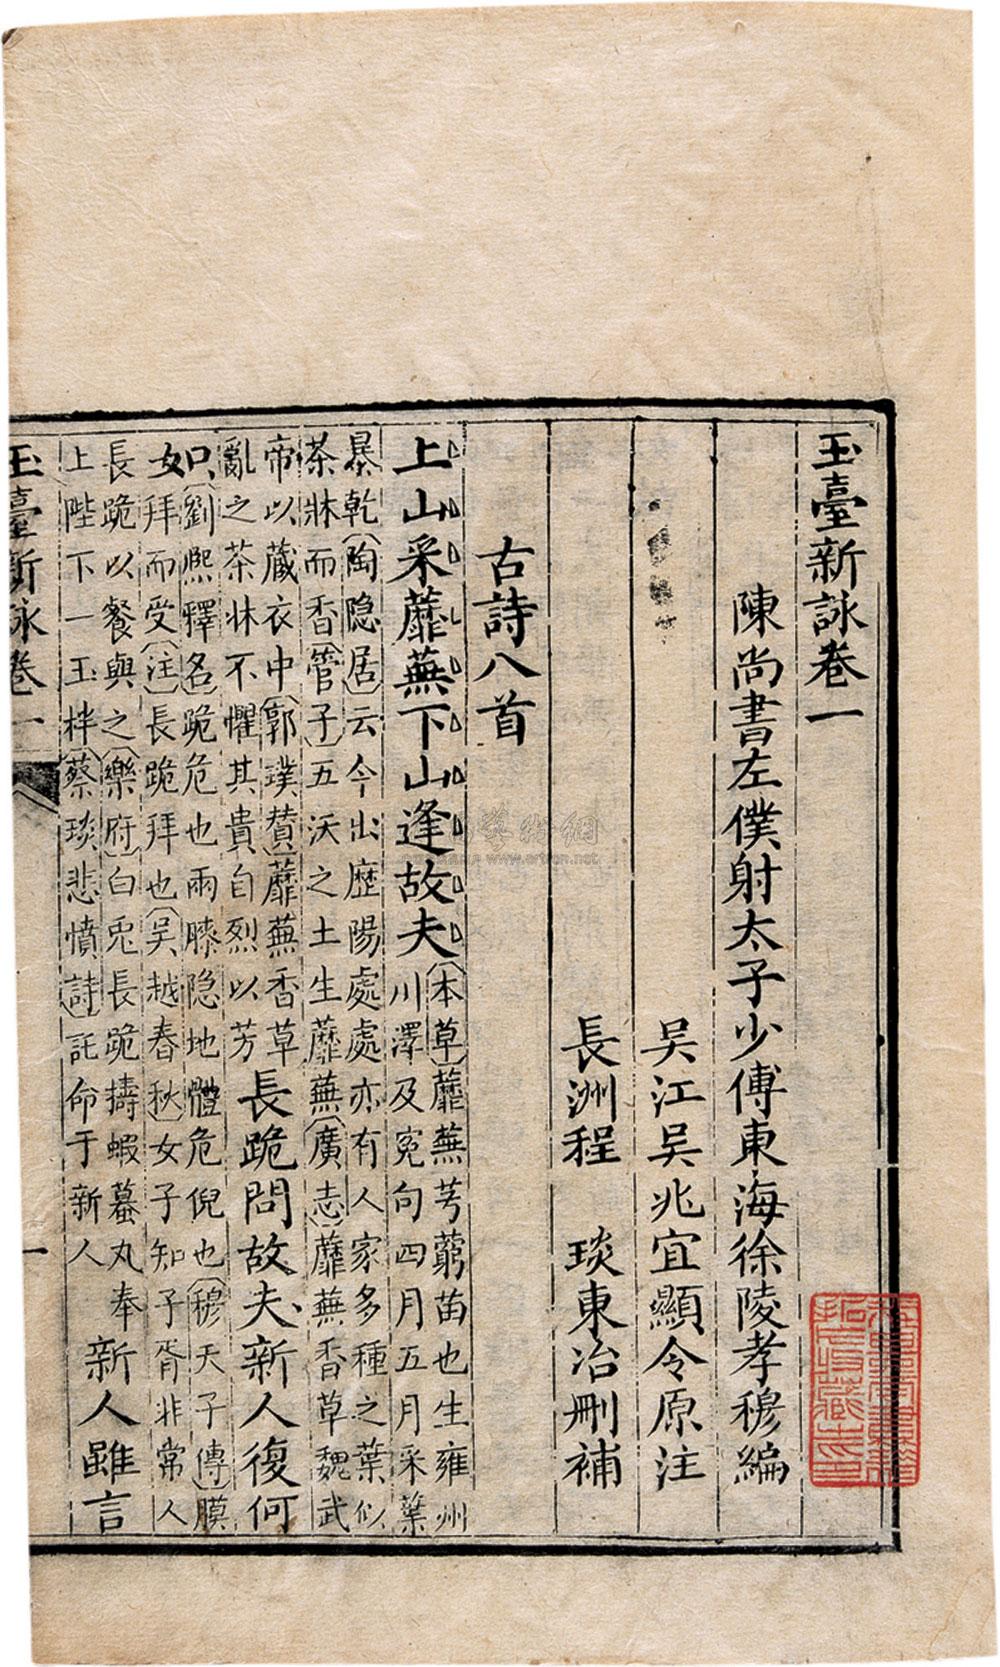 玉臺新詠卷一
陳尚書左僕射太子少傅東海徐陵孝穆編
吳江吳兆宜顯令原注
長洲程 琰東冶刪補
古詩八首
上山采蘼蕪下山逢故夫
〔本草〕蘼蕪芎藭苗也生雍州
川澤及冤句四月五月采葉
暴乾〔陶隱居〕云今出歷陽處處亦有人家多種之葉似
茶牀而香〔管子〕五沃之土生蘼蕪〔廣志〕蘼蕪香草魏武
帝以藏衣中〔郭璞贊〕蘼蕪香草
亂之茶牀不懼其貴自烈以芳
長跪問故夫新人復何
如
〔劉熙釋名〕跪危也兩膝隱地體危倪也〔穆天子傳〕膜
拜而受〔注〕長跪拜也〔吳越春秋〕女子知子胥非常人
長跪以餐與之〔樂府〕白兔長跪擣蝦蟇丸奉
上陛下一玉柈〔蔡琰悲憤詩〕託命于新人
新人雖言
玉臺新詠卷一
一